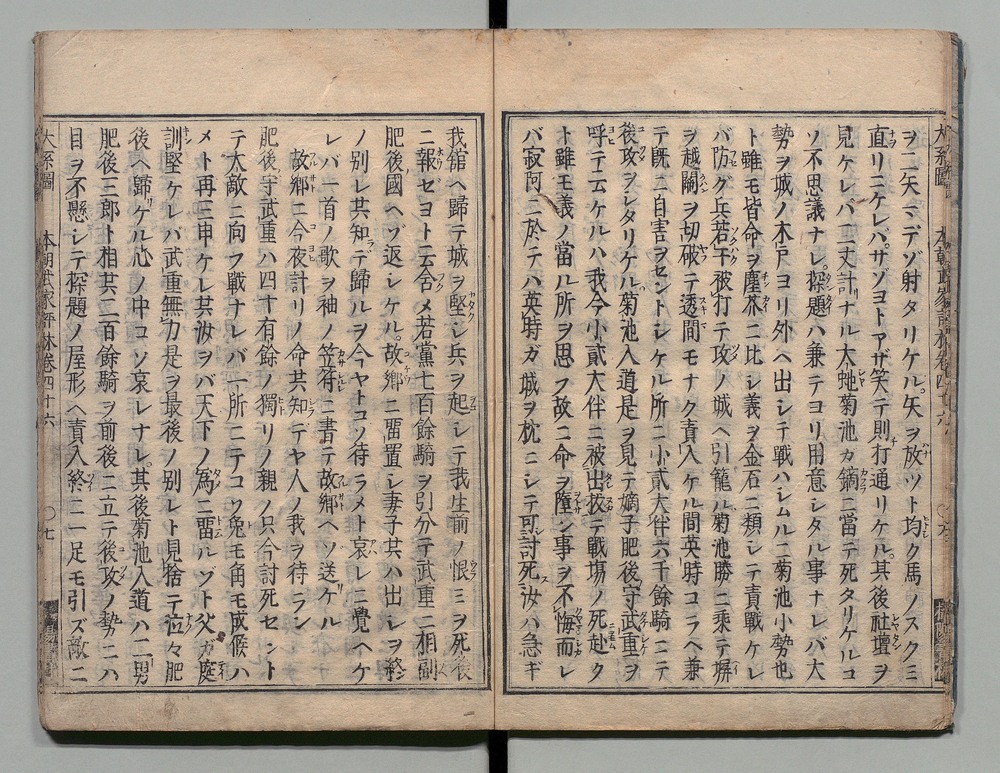 ヲ二矢マデゾ射タリケル。矢ヲ放ツト均ク馬ノスクミ
直リニケレバ。サゾヨトアザ笑テ則打通リケル。其後社壇ヲ
見ケレバ二丈計ナル大虵菊池カ鏑ニ當テ死タリケルコ
ソ不思議ナレ。探題ハ兼テヨリ用意シタル事ナレバ大
勢ヲ城ノ木戸ヨリ外ヘ出シテ戰ハシムルニ菊池小勢也
ト雖モ皆命ヲ塵芥ニ比シ義ヲ金石ニ類シテ責戰ケレ
バ防グ兵若干被打テ攻ノ城ヘ引籠ル菊池勝ニ乗テ塀
ヲ越關ヲ切破テ透間モナク責入ケル間英時コラヘ兼
テ既ニ自害ヲセントシケル所ニ小貳大伴六千餘騎ニテ
後攻ヲシタリケル菊池入道是ヲ見テ嫡子肥後守武重ヲ
呼テ云ケルハ我今小貳大伴ニ被出抜テ戰塲ノ死赴タ
ト雖モ義ノ當ル所ヲ思フ故ニ命ヲ墮ン事ヲ不悔而レ
バ寂阿ニ於テハ英時ガ城ヲ枕ニシテ可討死汝ハ急ギ
大系圖 本朝武家評林卷四十六 〇七
我舘ヘ歸テ城ヲ堅シ兵ヲ起シテ我生前ノ恨ミヲ死後
ニ報ゼヨト云含メ若黨七百餘騎ヲ引分テ武重ニ相副
肥後國ヘゾ返シケル。故郷ニ畱置シ妻子其ハ出シヲ終
ノ別レ其知ラデ歸ルヲ今ヤトコソ待ラメト哀レニ覺ヘケ
レバ一首ノ歌ヲ袖ノ笠符ニ書テ故郷ヘソ送ケル
故郷ニ今夜計リノ命其知テヤ人ノ我ヲ待ラン
肥後守武重ハ四十有餘ノ獨リノ親ノ只今討死セント
テ大敵ニ向フ戰ナレバ一所ニテコソ兔モ角モ成候ハ
メト再三申ケレ其汝ヲバ天下ノ爲ニ畱ルゾト父ガ庭
訓堅ケレバ武重無力是ヲ最後ノ別レト見捨テ泣々肥
後ヘ歸リケル心ノ中コソ哀レナレ。其後菊池入道ハ二男
肥後三郎ト相共二百餘騎ヲ前後ニ立テ後攻ノ勢ニハ
目ヲ不懸シテ探題ノ屋形ヘ責入終ニ一足モ引ズ敵ニ
大系圖 本朝武家評林卷四十六 〇七